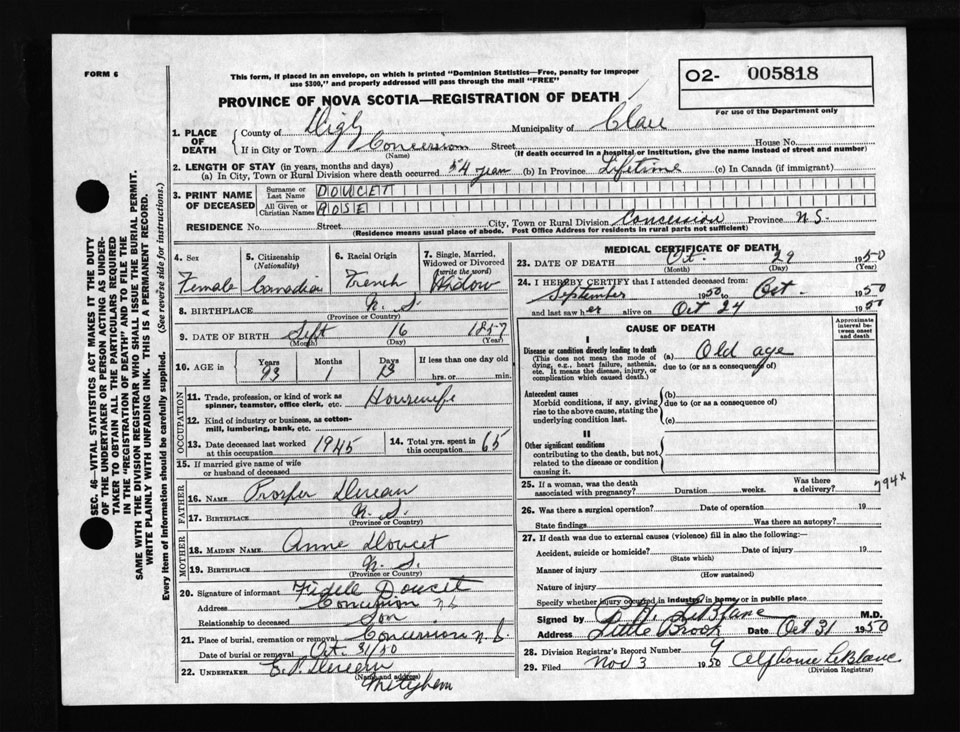 FORM 6
This form, if placed in an envelope, on which is printed "Dominion Statistics—Free, penalty for improper
use $300," and properly addressed will pass through the mail "FREE"
O2- 005818
For use of the Department only
PROVINCE OF NOVA SCOTIA—REGISTRATION OF DEATH
1. PLACE OF DEATH
County of Digby Municipality of Clare
If in City or Town Concession Street House No.
(Name) (If death occurred in a hospital or institution, give the name instead of street and number)
2. LENGTH OF STAY (in years, months and days)
(a) In City, Town or Rural Division where death occurred 54 years (b) In Province Lifetime (c) In Canada (if immigrant)
3. PRINT NAME OF DECEASED
Surname or Last Name DOUCET
All Given or Christian Names ROSE
RESIDENCE No. Street City, Town or Rural Division Concession Province N.S.
(Residence means usual place of abode. Post Office Address for residents in rural parts not sufficient)
4. Sex Female
5. Citizenship (Nationality) Canadian
6. Racial Origin French
7. Single, Married, Widowed or Divorced (write the word) Widow
8. BIRTHPLACE N. S.
(Province or Country)
9. DATE OF BIRTH Sept 16 1857
(Month) (Day) (Year)
10. AGE in Years 93 Months 1 Days 13 If less than one day old hrs. or min.
OCCUPATION
11. Trade, profession, or kind of work as spinner, teamster, office clerk, etc. Housewife
12. Kind of industry or business, as cotton-mill, lumbering, bank, etc.
13. Date deceased last worked at this occupation 1945
14. Total yrs. spent in this occupation 65
15. If married give name of wife or husband of deceased
FATHER
16. NAME Prosper
17. BIRTHPLACE N. S.
(Province or Country)
MOTHER
18. MAIDEN NAME Anne Doucet
19. BIRTHPLACE N. S.
(Province or Country)
20. Signature of informant Fidele Doucet
Address Concession N S
Relationship to deceased Son
21. Place of burial, cremation or removal Concession N. S.
Date of burial or removal Oct. 31/50
22. UNDERTAKER
(Name and address)
Meteghan
MEDICAL CERTIFICATE OF DEATH
23. DATE OF DEATH Oct. 29 1950
(Month) (Day) (Year)
24. I HEREBY CERTIFY that I attended deceased from:
September 1950 to Oct. 1950
and last saw her alive on Oct 24 1950
CAUSE OF DEATH
Approximate interval between onset and death
I
Disease or condition directly leading to death (a) Old age
(This does not mean the mode of dying, e.g., heart failure, asthenia, etc. It means the disease, injury, or complication which caused death.)
due to (or as a consequence of)
Antecedent causes (b)
Morbid conditions, if any, giving rise to the above cause, stating the underlying condition last.
due to (or as a consequence of)
(c)
II
Other significant conditions
contributing to the death, but not related to the disease or condition causing it.
25. If a woman, was the death associated with pregnancy? Duration weeks. Was there a delivery?
794x
26. Was there a surgical operation? Date of operation 19
State findings Was there an autopsy?
27. If death was due to external causes (violence) fill in also the following:—
Accident, suicide or homicide? Date of injury 19
(State which)
Manner of injury
(How sustained)
Nature of injury
Specify whether injury occurred in industry, in home, or in public place
Signed by LeBlanc M.D.
Address Little Brook Date Oct 31 1950
28. Division Registrar's Record Number 9
29. Filed Nov 3 1950 Alphonse LeBlanc
(Division Registrar)
SEC. 46—VITAL STATISTICS ACT MAKES IT THE DUTY
OF THE UNDERTAKER OR PERSON ACTING AS UNDER-
TAKER TO OBTAIN ALL THE PARTICULARS REQUIRED
IN THE "REGISTRATION OF DEATH" AND TO FILE THE
SAME WITH THE DIVISION REGISTRAR WHO SHALL ISSUE THE BURIAL PERMIT.
WRITE PLAINLY WITH UNFADING INK. THIS IS A PERMANENT RECORD.
Every item of information should be carefully supplied. (See reverse side for instructions.)